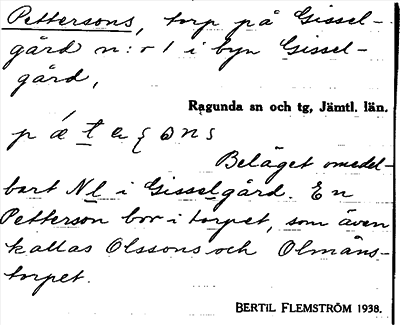 Pettersons, torp på Gissel-
gård n:o 1 i byn Gissel-
gård,
Ragunda sn och tg, Jämtl. län.
Beläget omedel-
bart NL i Gisselgård. En
Petterson bor i torpet, som även
kallas Olssons och Olmäns-
torpet.
BERTIL FLEMSTRÖM 1938.